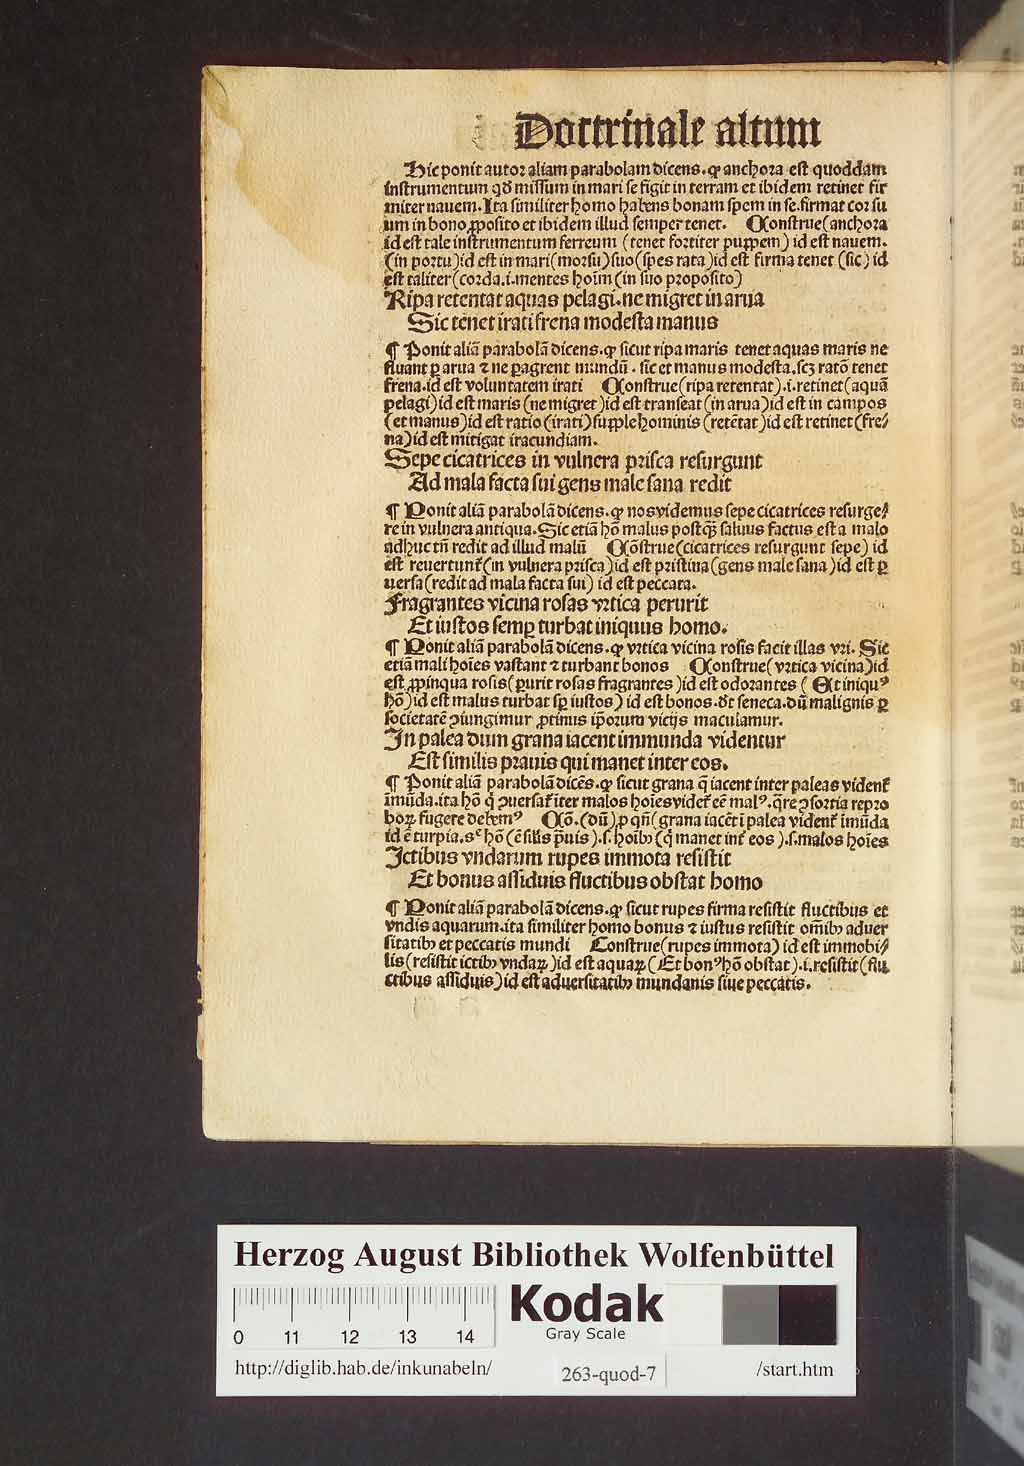 Doctrinale altum
Hic ponit autor aliam parabolam dicens. ꝙ anchora est quoddam
instrumentum qd̕ missum in mari se figit in terram et ibidem retinet fir
miter nauem. Ita similiter homo habens bonam spem in se. firmat cor su
um in bono ꝓposito et ibidem illud semper tenet. Construe (anchora
id est tale instrumentum ferreum (tenet fortiter puppem) id est nauem.
(in portu) id est in mari (morsu) suo (spes rata) id est firma tenet (sic) id
est taliter (corda .i. mentes hoīm (in suo proposito)
Ripa retentat aquas pelagi. ne migret in arua
Sic tenet irati frena modesta manus
¶ Ponit aliā parabolā dicens. ꝙ sicut ripa maris tenet aquas maris ne
fluant ꝑ arua ⁊ ne ꝑagrent mundū. sic et manus modesta. scꝫ ratō tenet
frena. id est voluntatem irati Construe (ripa retentat) .i. retinet (aquā
pelagi) id est maris (ne migret) id est transeat (in arua) id est in campos
(et manus) id est ratio (irati) supple hominis (retētat) id est retinet (fre/
na) id est mitigat iracundiam.
Sepe cicatrices in vulnera prisca resurgunt
Ad mala facta sui gens male sana redit
¶ Ponit aliā parabolā dicens. ꝙ nos videmus sepe cicatrices resurge/
re in vulnera antiqua. Sic etiā hō malus postq̄ȝ saluus factus est a malo
adhuc tn̄ redit ad illud malū Cōstrue (cicatrices resurgunt sepe) id
est reuertunt᷑ (in vulnera prisca) id est pristina (gens male sana) id est ꝑ
uersa (redit ad mala facta sui) id est peccata.
Fragrantes vicina rosas vrtica perurit
Et iustos semꝑ turbat iniquus homo.
¶ Ponit aliā parabolā dicens. ꝙ vrtica vicina rosis facit illas vri. Sic
etiā mali hoīes vastant ⁊ turbant bonos Construe (vrtica vicina) id
est ꝓpinqua rosis (ꝑurit rosas fragrantes) id est odorantes (Et iniquꝰ
hō) id est malus turbat sꝑ iustos) id est bonos. vt̕ seneca. dū malignis ꝑ
societatē ꝯiungimur ꝓtinus ip̄orum vicijs maculamur.
In palea dum grana iacent immunda videntur
Est similis prauis qui manet inter eos.
¶ Ponit aliā parabolā dicēs. ꝙ sicut grana q̄ iacent inter paleas vident᷑
īmūda. ita hō q̇ ꝯuersat᷑ iter malos hoīes videt᷑ eē malꝰ. q̄re ꝯsortia repro
boꝝ fugere debemꝰ Cō. (dū) .ꝑ qn̄ (grana iacēt ī palea vident᷑ imūda
id ē turpia. sͨ hō (ē sil̄is p̄uis) .s. hoībꝰ (q̇ manet int᷑ eos) .s. malos hoīes
Ictibus vndarum rupes immota resistit
Et bonus assiduis fluctibus obstat homo
¶ Ponit aliā parabolā dicens. ꝙ sicut rupes firma resistit fluctibus et
vndis aquarum. ita similiter homo bonus ⁊ iustus resistit om̄ibꝰ aduer
sitatibꝰ et peccatis mundi Construe (rupes immota) id est immobi/
lis (resistit ictibꝰ vndaꝝ) id est aquaꝝ (Et bonꝰ hō obstat) .i. resistit (flu
ctibus assiduis) id est aduersitatibꝰ mundanis siue peccatis.
Herzog August Bibliothek Wolfenbüttel
0 11 12 13 14
Kodak
Gray Scale
http://diglib.hab.de/inkunabeln/ 263-quod-7 /start.htm